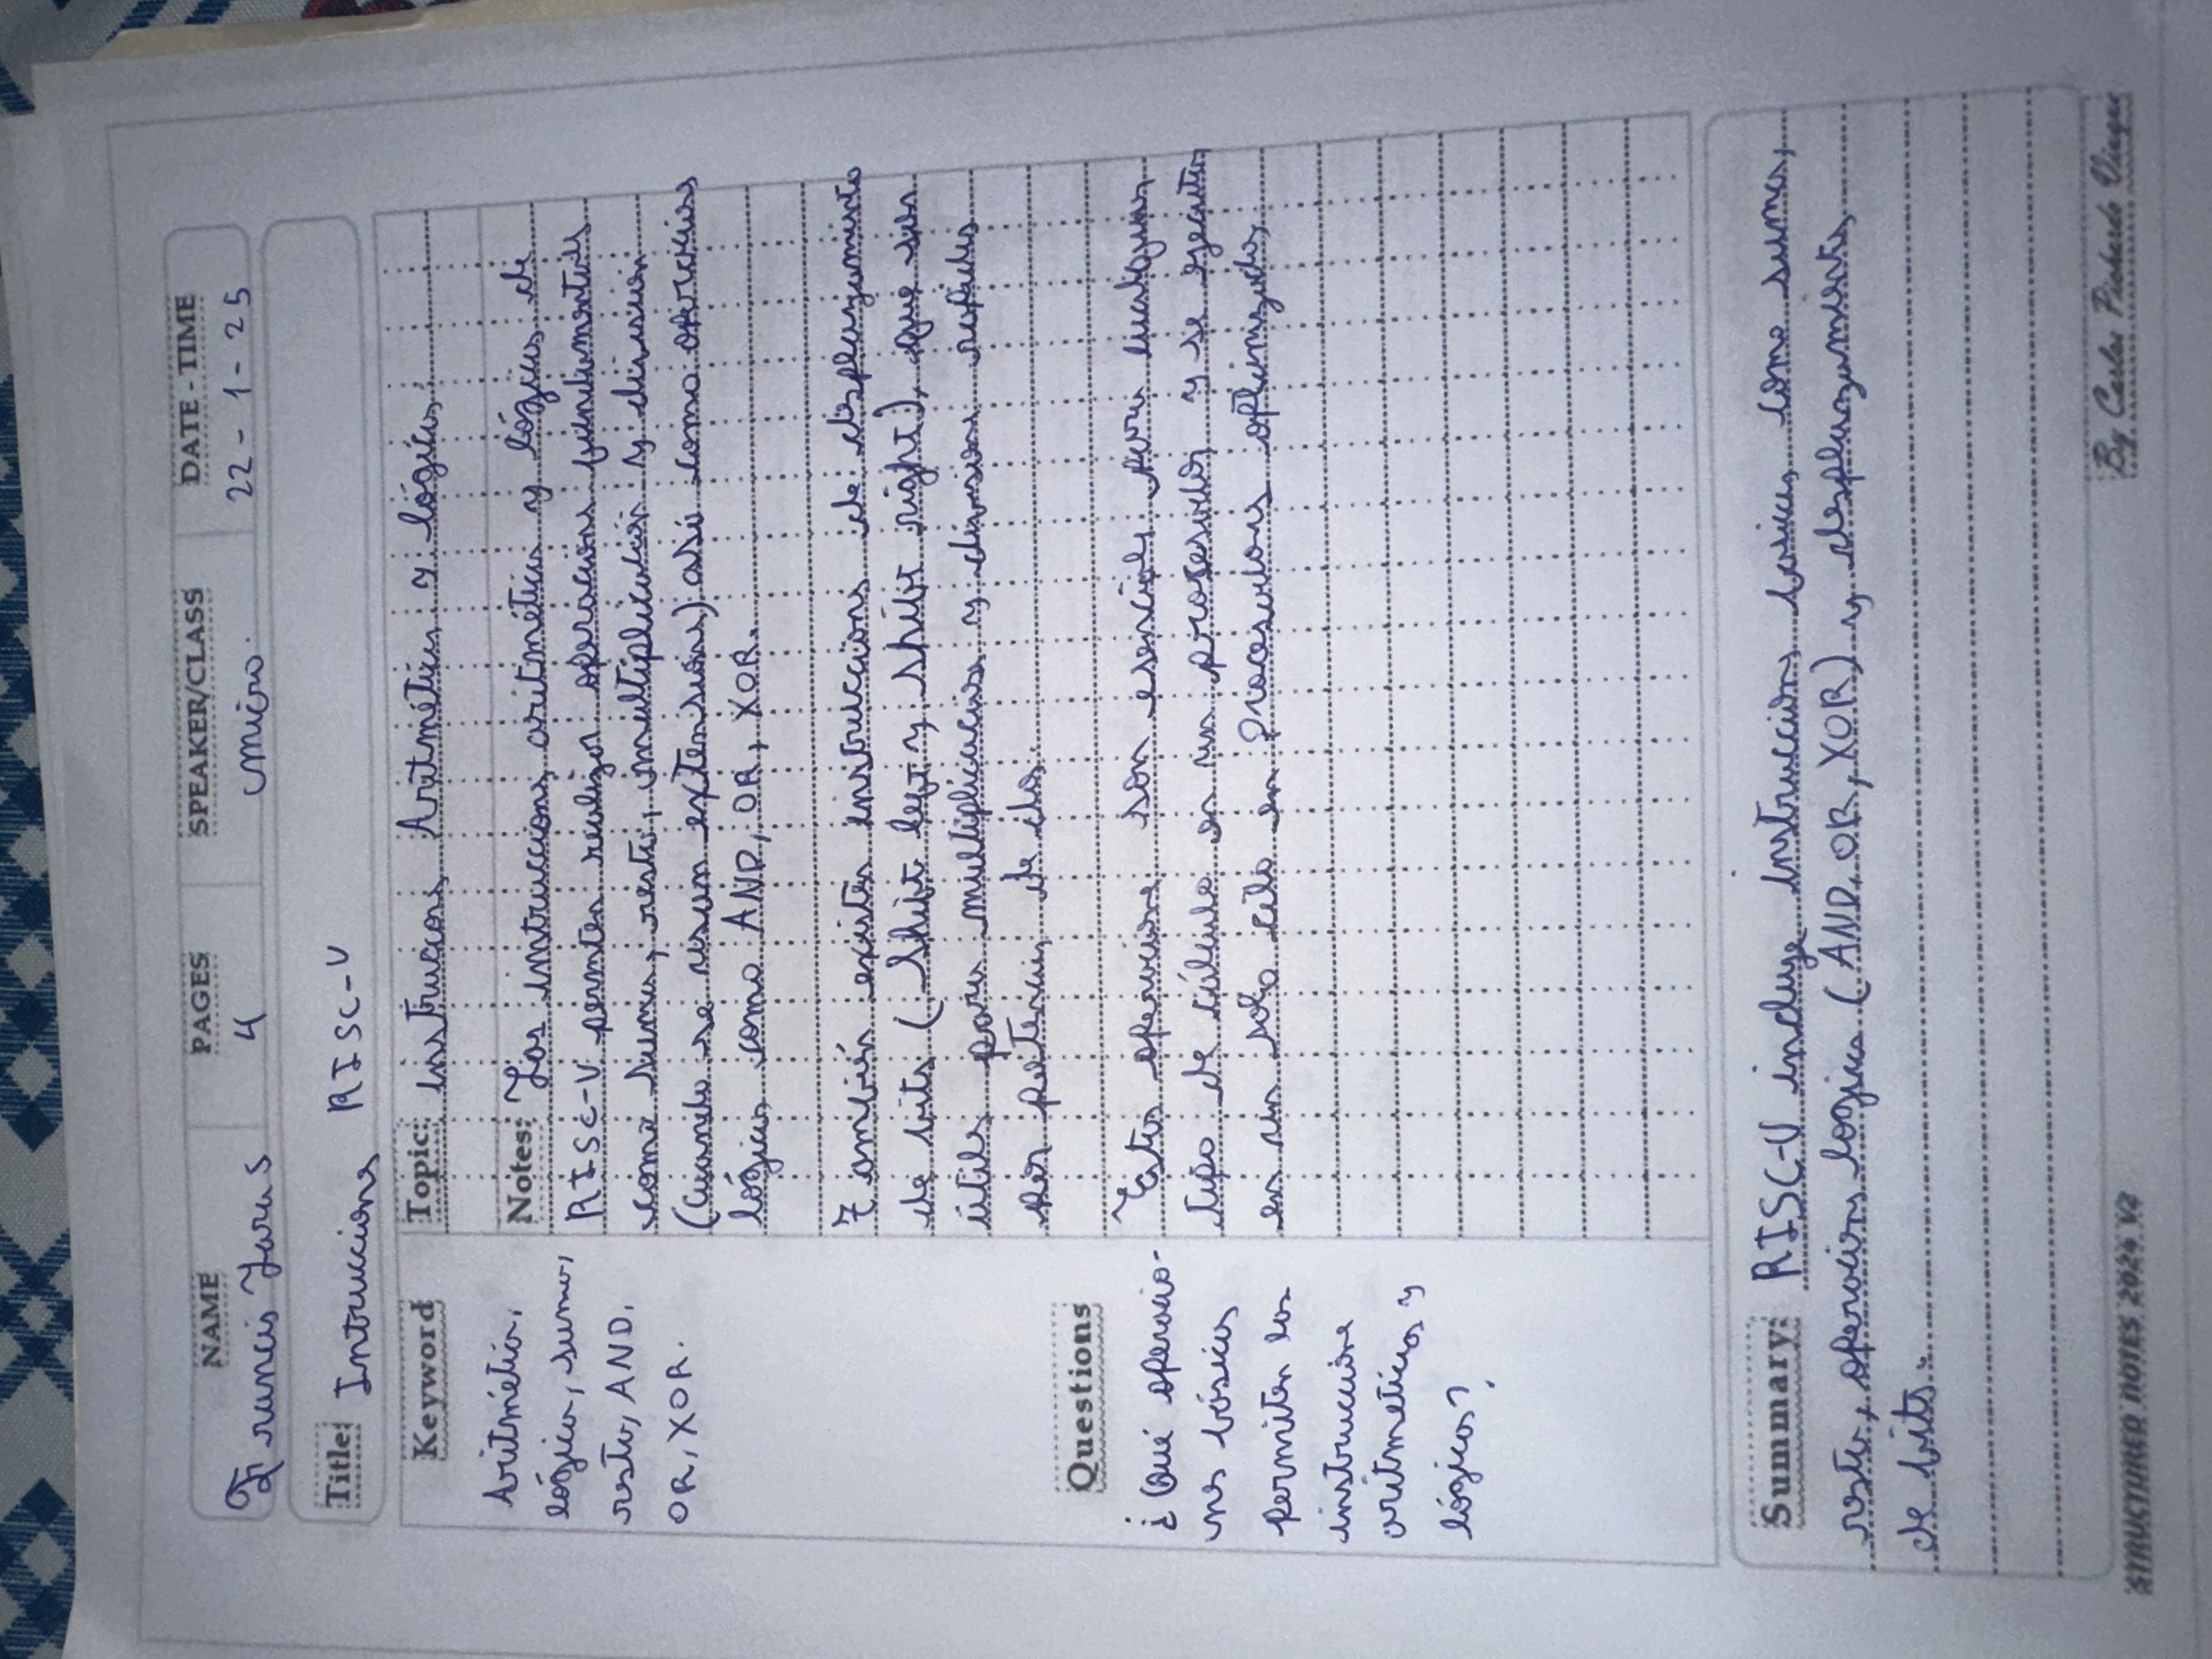 NAME PAGES SPEAKER/CLASS DATE - TIME
Francis Jara S 4 Micro. 22 - 1 - 25
Title: Intrucciones RISC-V
Keyword
Aritmética,
lógica, suma,
resta, AND,
OR, XOR.
Topic: instrucciones Aritméticas y lógicas
Notes: Las intrucciones aritmética y lógicas de
RISC-V permiten realizar operaciones fundamentales
como suma, resta, multiplicación y división
(cuando se usan extensiones) así como operaciones
lógicas como AND, OR, XOR.
También existen instrucciones de desplazamiento
de bits (Shift left y shift right), que son
útiles para multiplicaciones y divisiones rapidas
por potencias de dos.
Estas operaciones son esenciales para cualquier
tipo de cálculo en un procesador y se ejecutan
en un solo ciclo en Procesadores optimizados
Questions
¿Qué operacio-
nes básicas
permiten las
instrucciones
aritmeticas y
lógicas?
Summary: RISC-V incluye instrucciones basicas como suma,
resta, operaciones logicas (AND, OR, XOR) y desplazamientos
de bits.
STRUCTURED NOTES 2024 V2
By Carlos Pichardo Viuque